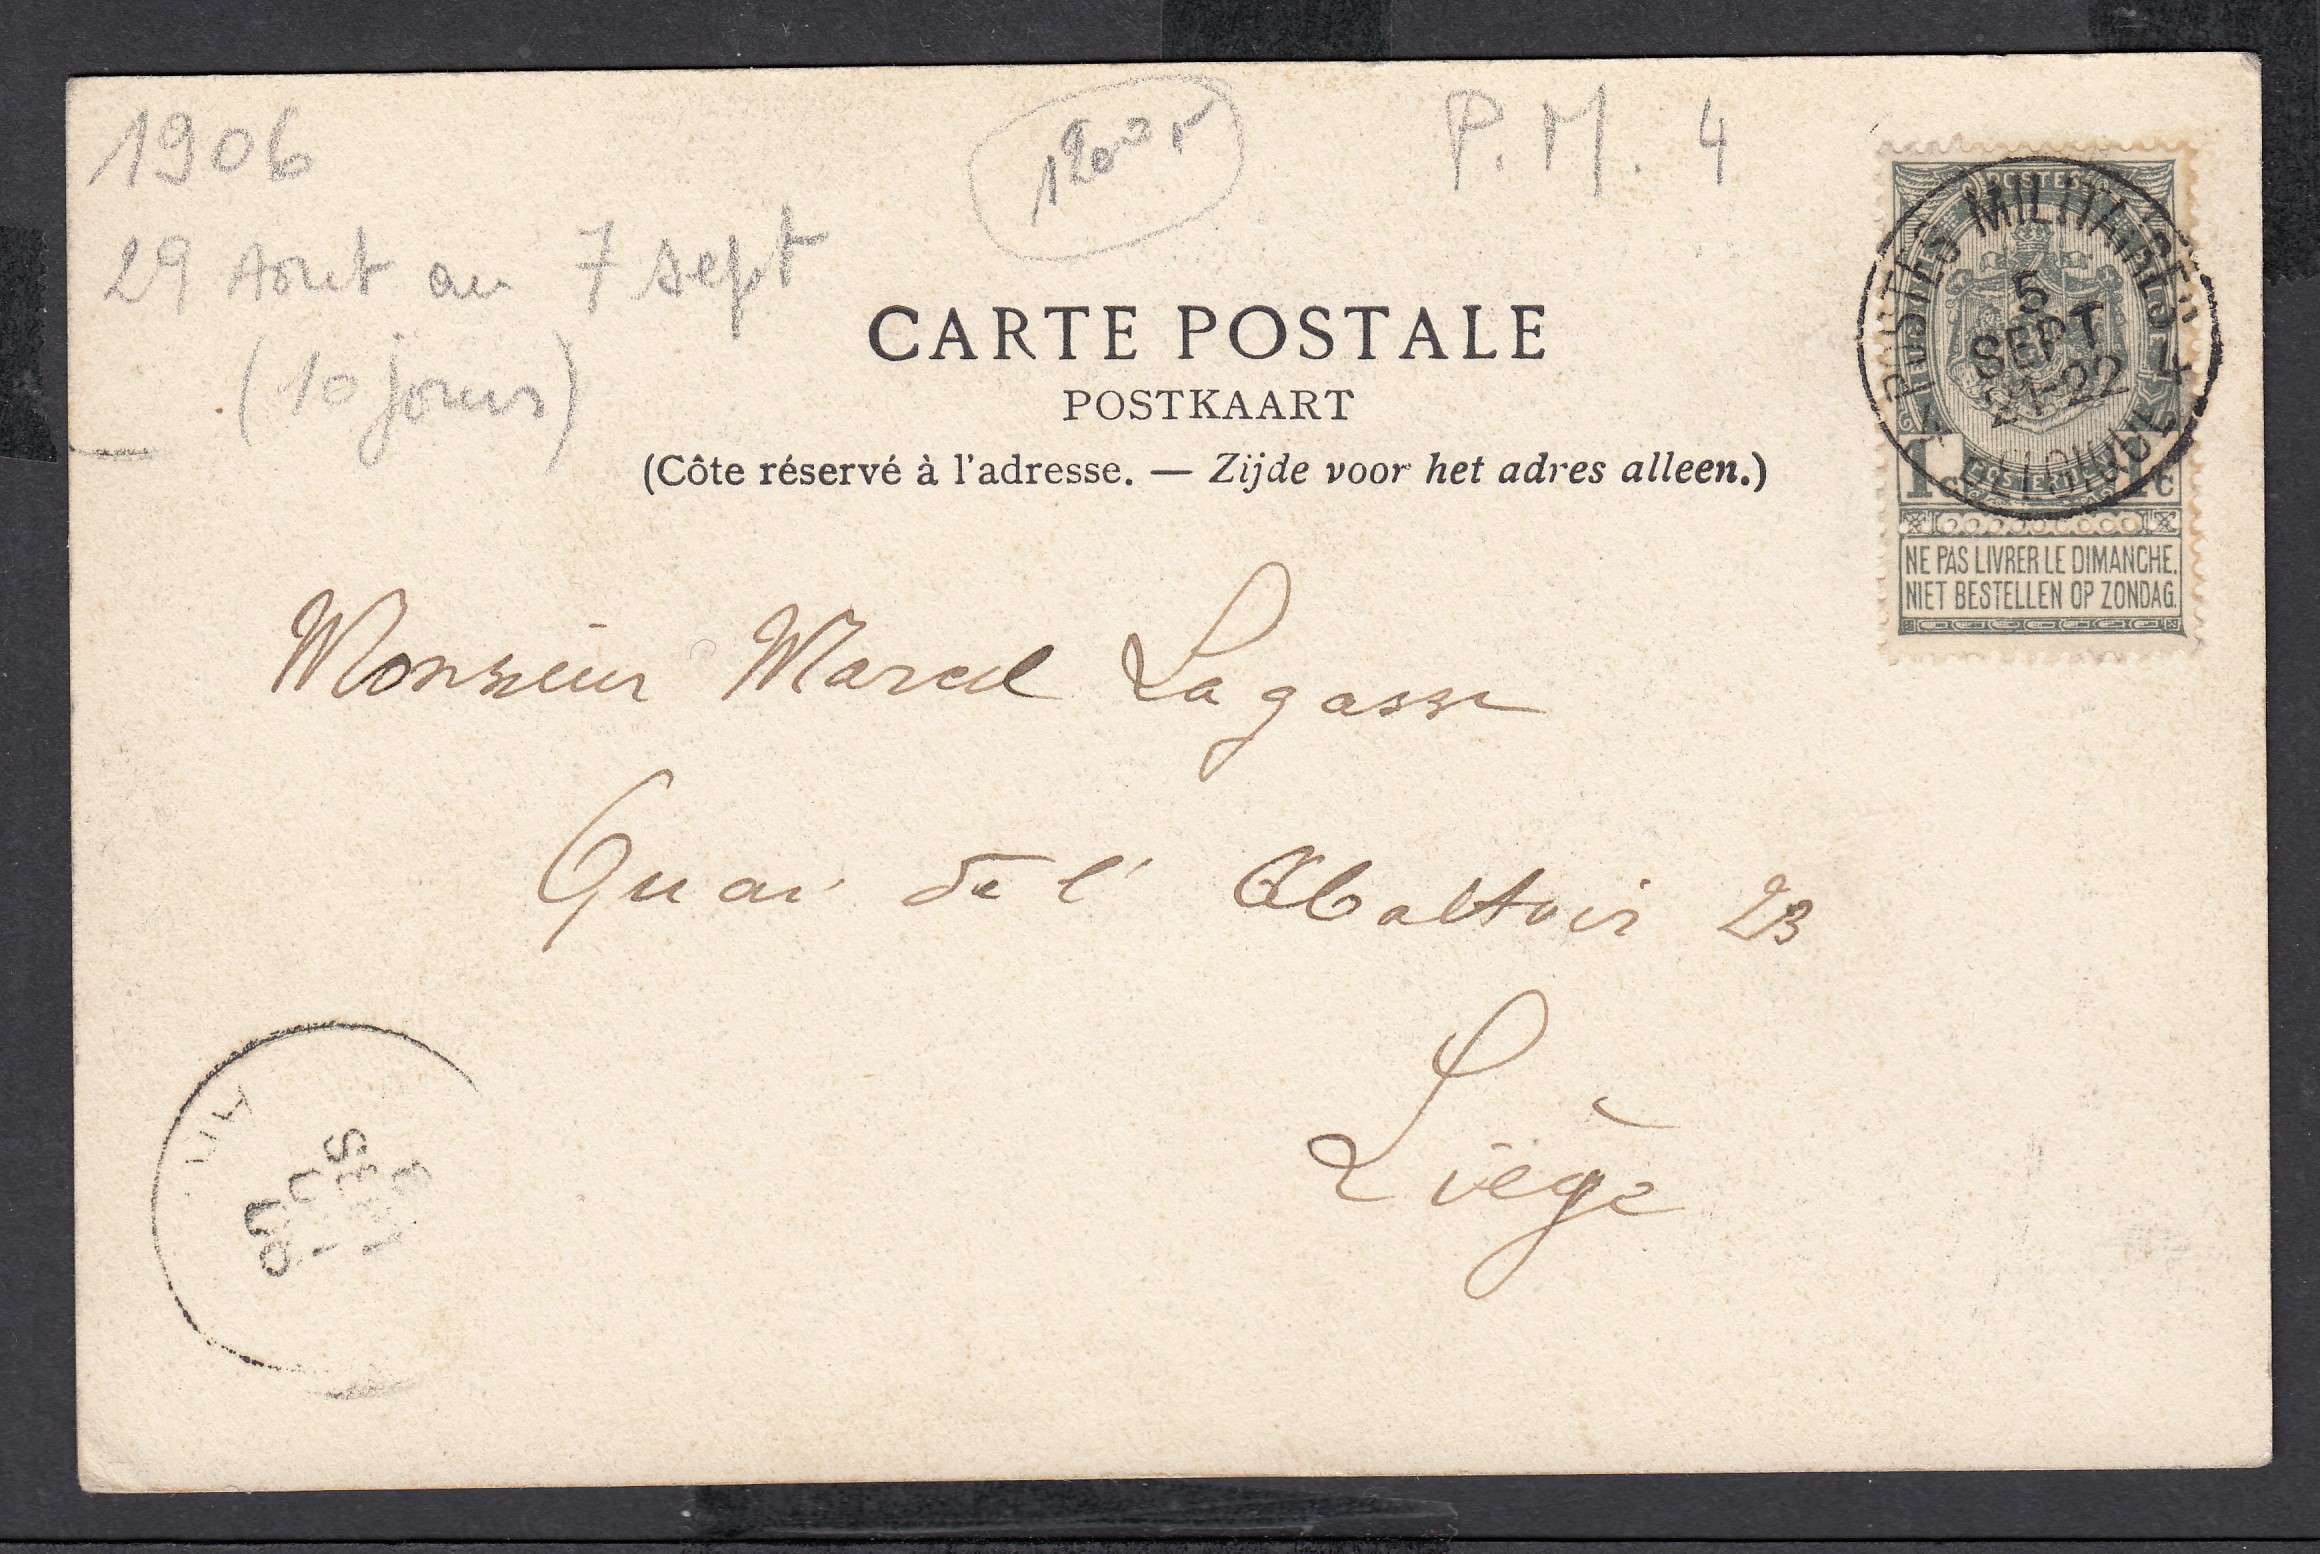 1906
P. M. 4
29 Aout au 7 sept
(10 jours)
CARTE POSTALE
POSTKAART
(Côte réservé à l'adresse. — Zijde voor het adres alleen.)
POSTES
POSTES MILITAIRES 4
BELGIQUE
5
SEPT
21-22
1c 1c
NE PAS LIVRER LE DIMANCHE.
NIET BESTELLEN OP ZONDAG.
Monsieur Marcel Lagasse
Quai de l' Abattoir 23
Liège